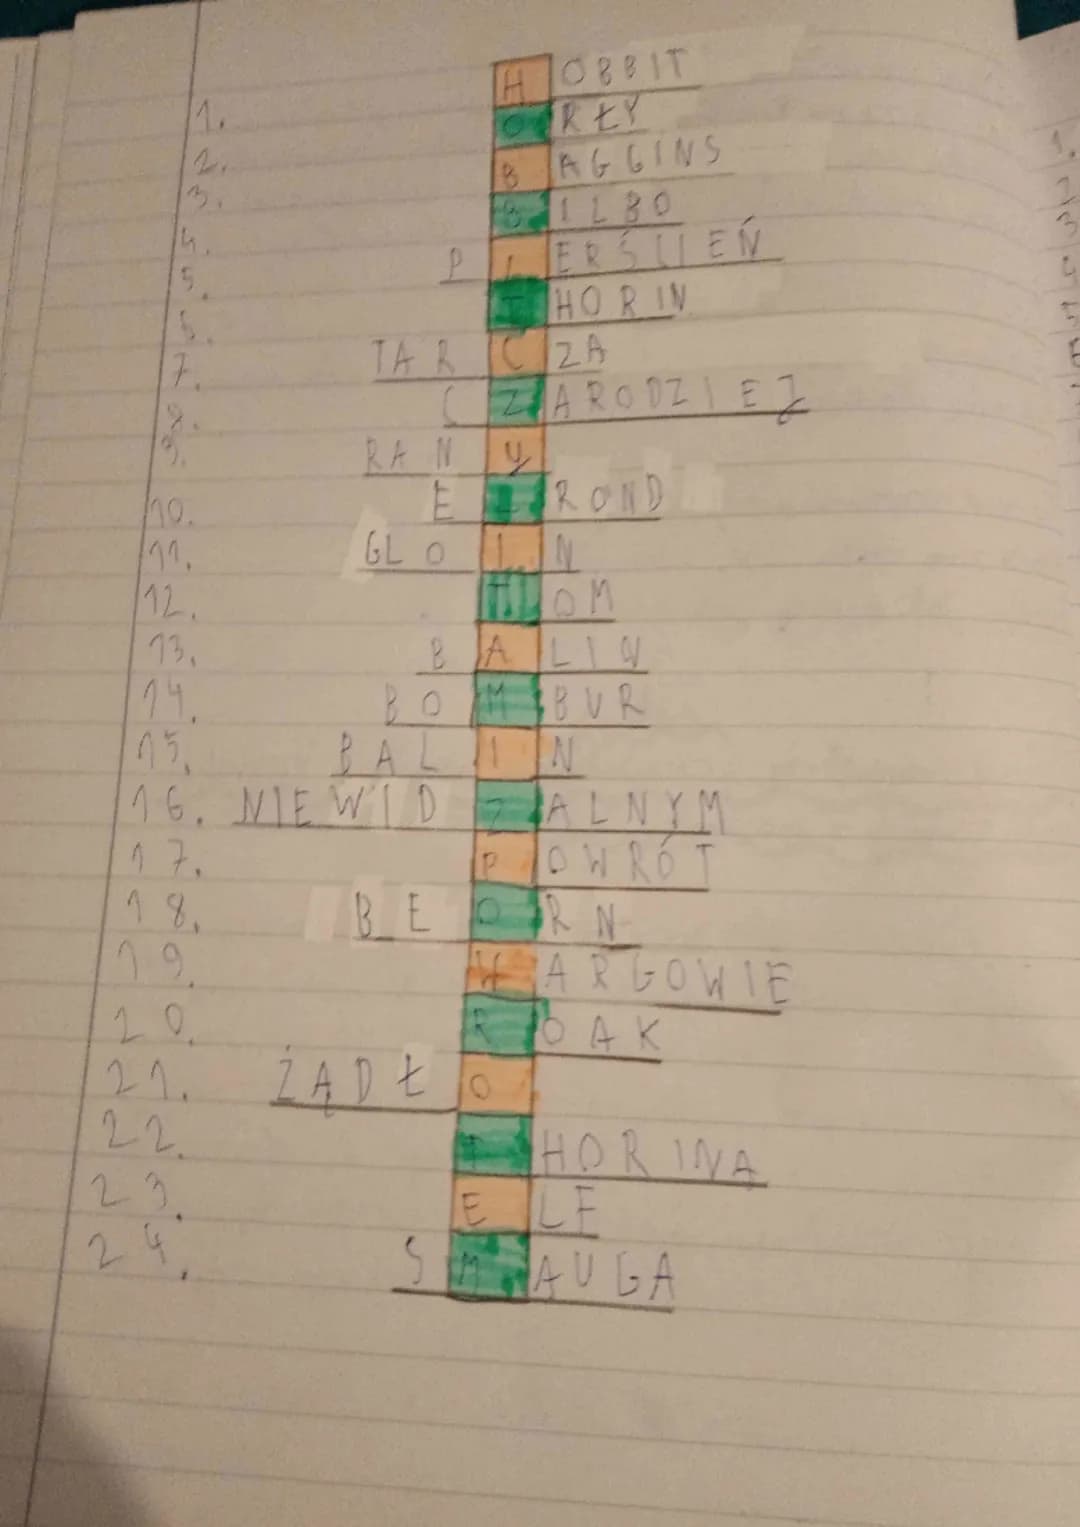 1. HOBBIT
2. ORŁY
3. BAGGINS
4. BILBO
5. PIERŚCIEŃ
6. THORIN
7. TARCZA
8. CZARODZIEJ
9. RANY
10. ELROND
11. GLOIN
12. TOM
13. BALIN
14. BOMBUR
15. BALIN
16. NIEWIDZALNYM
17. POWRÓT
18. BEORN
19. WARGOWIE
20. ROAK
21. ŻĄDŁO
22. THORINA
23. ELF
24. SMAUGA